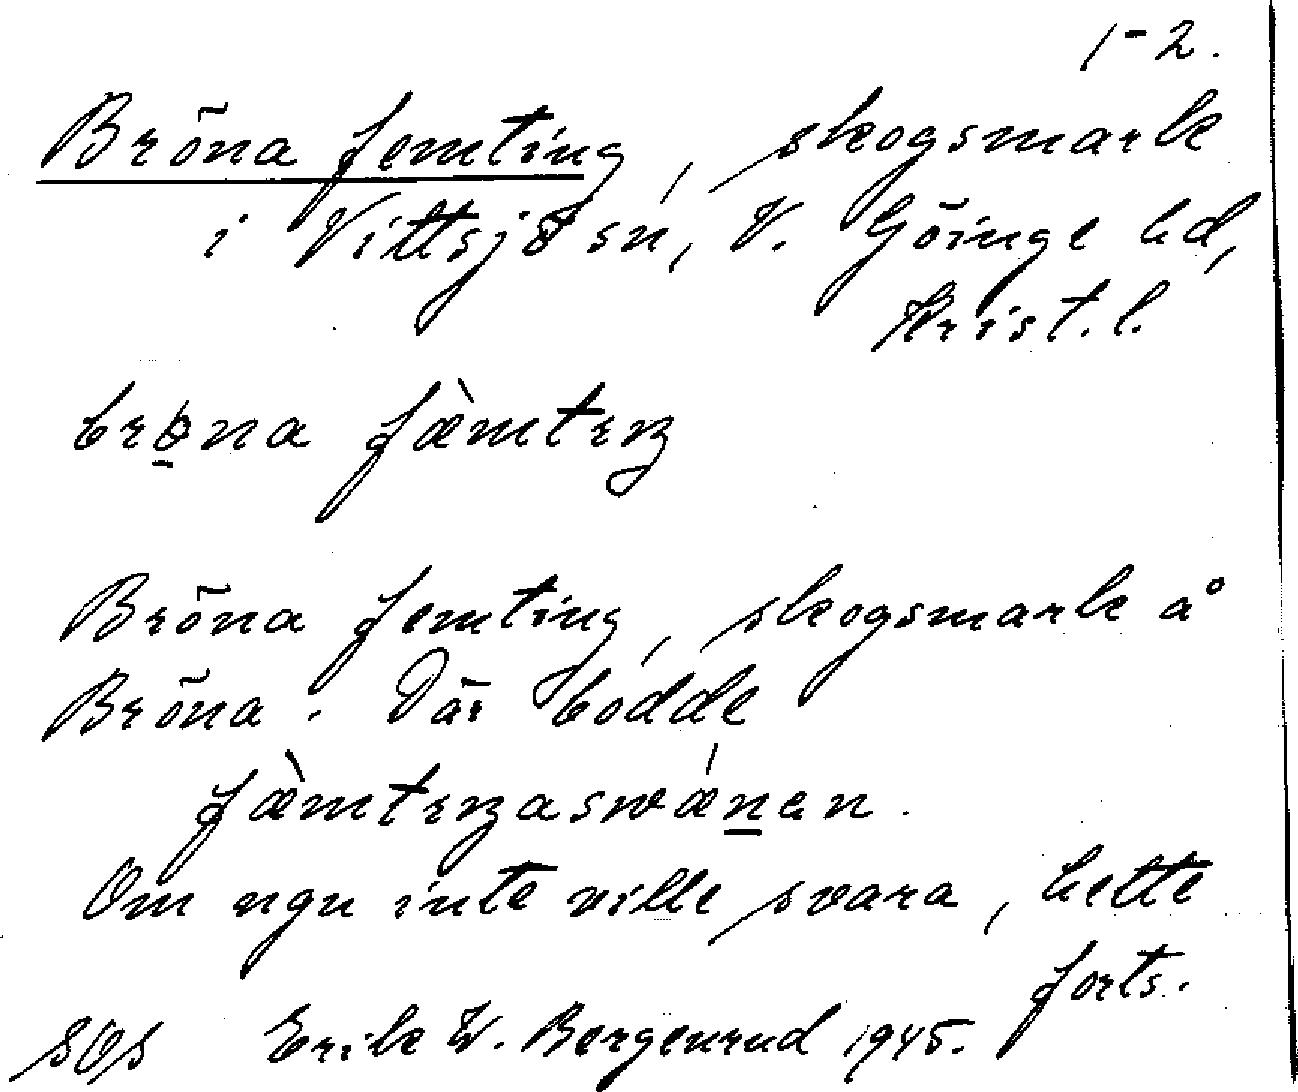 1-2.
Bröna femting, skogsmark
i Vittsjö sn, V. Göinge hd,
Krist. l.
brøna fæ̀mtıŋ
Bröna femting, skogsmark å
Bröna. Där bodde
fæ̀mtıŋaswǽnan.
Om ngn inte ville svara, hette
forts.
SOS Erik W. Bergenrud 1945.